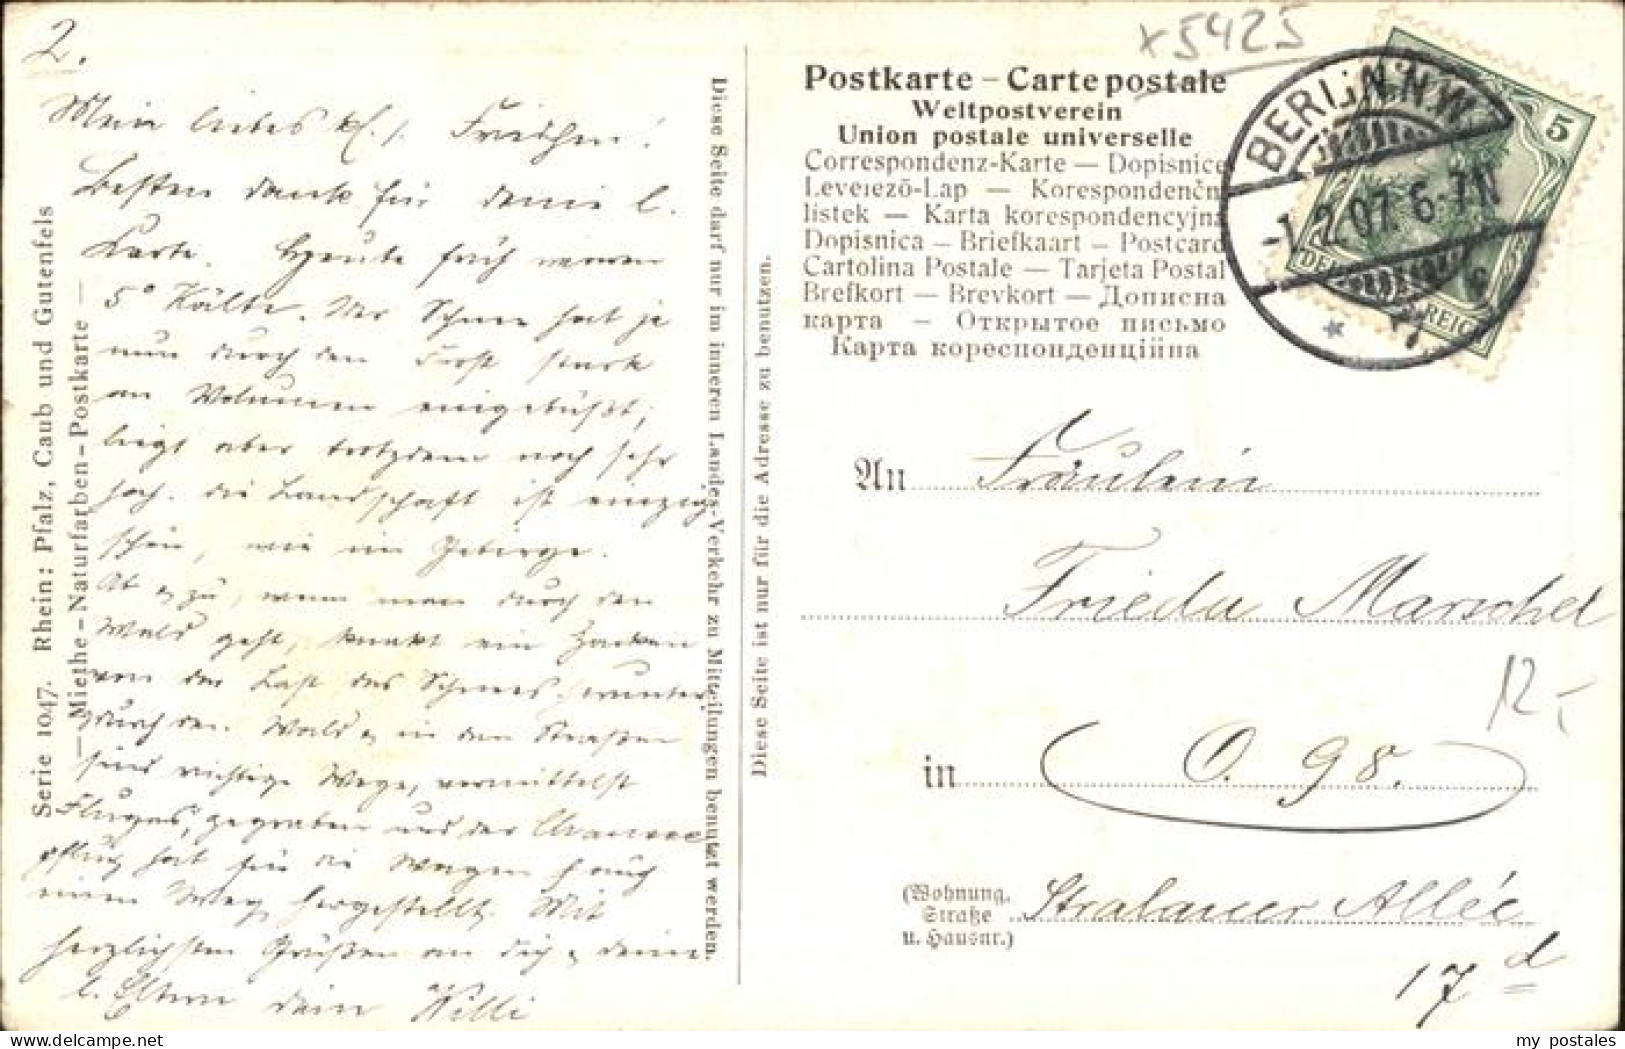 2.
Mein liebes kl. Friedchen!
Besten Dank für deine l.
Karte. Heute früh waren
5° Kälte. Der Schnee hat ja
nun durch den Frost stark
an Volumen eingebüßt,
liegt aber trotzdem noch sehr
hoch. die Landschaft ist einzig
schön, wie im Gebirge.
Ab & zu, wenn man durch den
Wald geht, knackt ein
von der Last des Schnees herunter
durch den Wald & in den Straßen
sind richtige Wege, vermittelst
gegraben und der
pflug hat für die Wagen auch
einen Weg hergestellt. Mit
herzlichsten Grüßen an dich & deine
l. Eltern dein Willi
Serie 1047. Rhein: Pfalz, Caub und Gutenfels
— Miethe-Naturfarben-Postkarte —
Diese Seite darf nur im inneren Landes-Verkehr zu Mitteilungen benutzt werden.
Diese Seite ist nur für die Adresse zu benutzen.
x5425
Postkarte – Carte postale
Weltpostverein
Union postale universelle
Correspondenz-Karte — Dopisnice
Levelező-Lap — Korespondenčn
listek — Karta korespondencyjna
Dopisnica — Briefkaart — Postcard
Cartolina Postale — Tarjeta Postal
Brefkort — Brevkort — Дописна
карта — Открытое письмо
Карта кореспонденційна
5
DEUTSCHES REICH
BERLIN.N.W.
-1.2.07.6-7N
* 7 c
An Fräulein
Frieda Marschel
12,-
in O. 98.
(Wohnung, Straße u. Hausnr.) Stralauer Allée
17 d
my postales